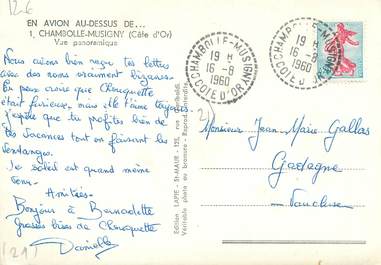 12€
EN AVION AU-DESSUS DE...
1, CHAMBOLLE-MUSIGNY (Côte d'Or)
Vue panoramique
Nous avons bien reçu tes lettres
avec des noms vraiment bizarres.
Tu peux croire que Chouquette
était furieuse mais elle t'aime toujours.
J'espère que tu profites bien de
tes vacances tout en faisant les
vendanges.
Le soleil est quand même
venu.
Amitiés.
Bonjour à Bernadette
Grosses bises de Chouquette
Danielle
(21)
Edition LAPIE - St-MAUR - 125, rue Garibaldi.
Véritable photo au bromure - Reprod. interdite
CHAMBOLLE-MUSIGNY
19 H
16-8
1960
COTE D'OR
CHAMBOLLE-MUSIGNY
19 H
16-8
1960
COTE D'OR
21
Monsieur Jean-Marie Gallas
Gadagne
Vaucluse